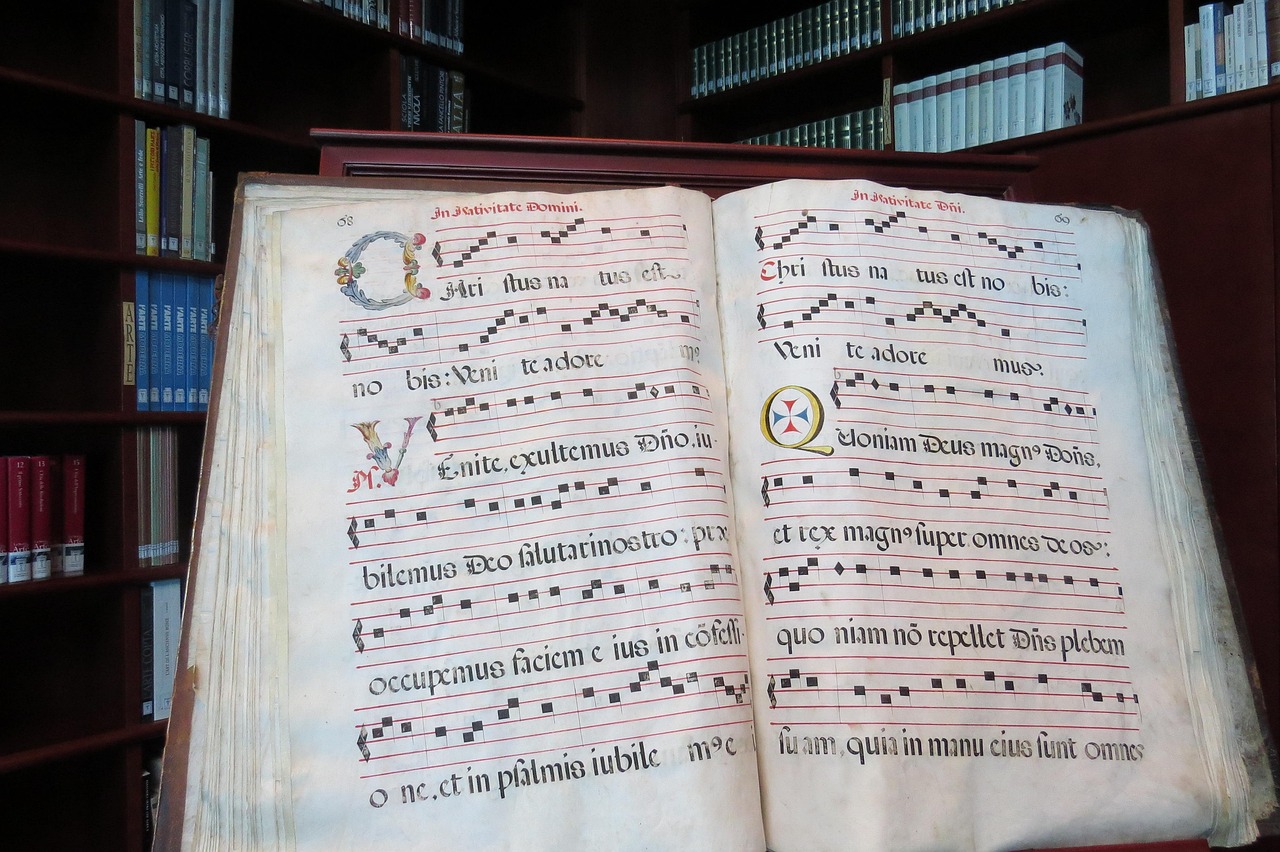 68
In Nativitate Domini.
CHri stus na tus est
no bis: Veni te adore m⁹
Ps. VEnite, exultemus Dño. iu-
bilemus Deo salutarinostro: præ
occupemus faciem e ius in cõfessi-
o ne, et in psalmis iubile m⁹ e
69
In Nativitate Dñi.
Chri stus na tus est no bis:
Veni te adore mus.
QUoniam Deus magn⁹ Doñs,
et rex magn⁹ super omnes deos;
quo niam nõ repellet Dñs plebem
su am, quia in manu eius sunt omnes
ARTE
L'ARTE
L'ARTE
L'ARTE
L'ARTE
L'ARTE